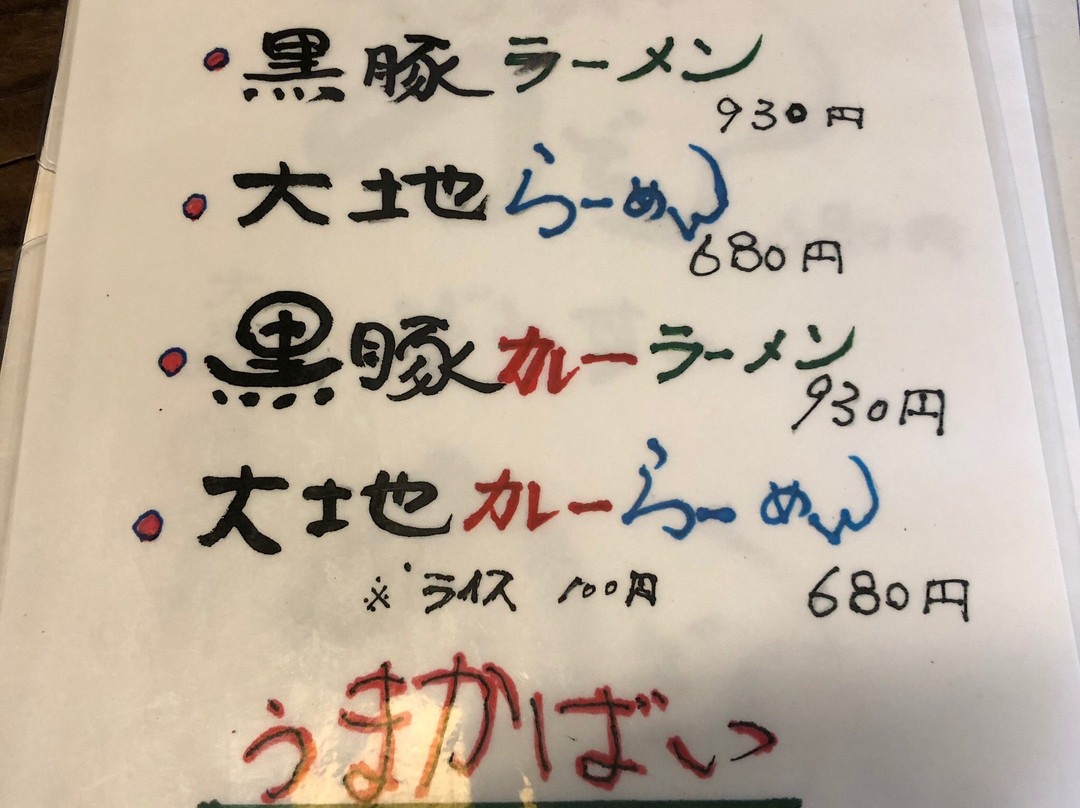 • 黒豚ラーメン
930円
• 大地らーめん
680円
• 黒豚カレーラーメン
930円
• 大地カレーらーめん
※ ライス 100円 680円
うまかばい